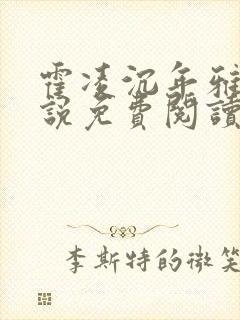 霍凌沉年雅
說免費閱讀
李斯特的微笑